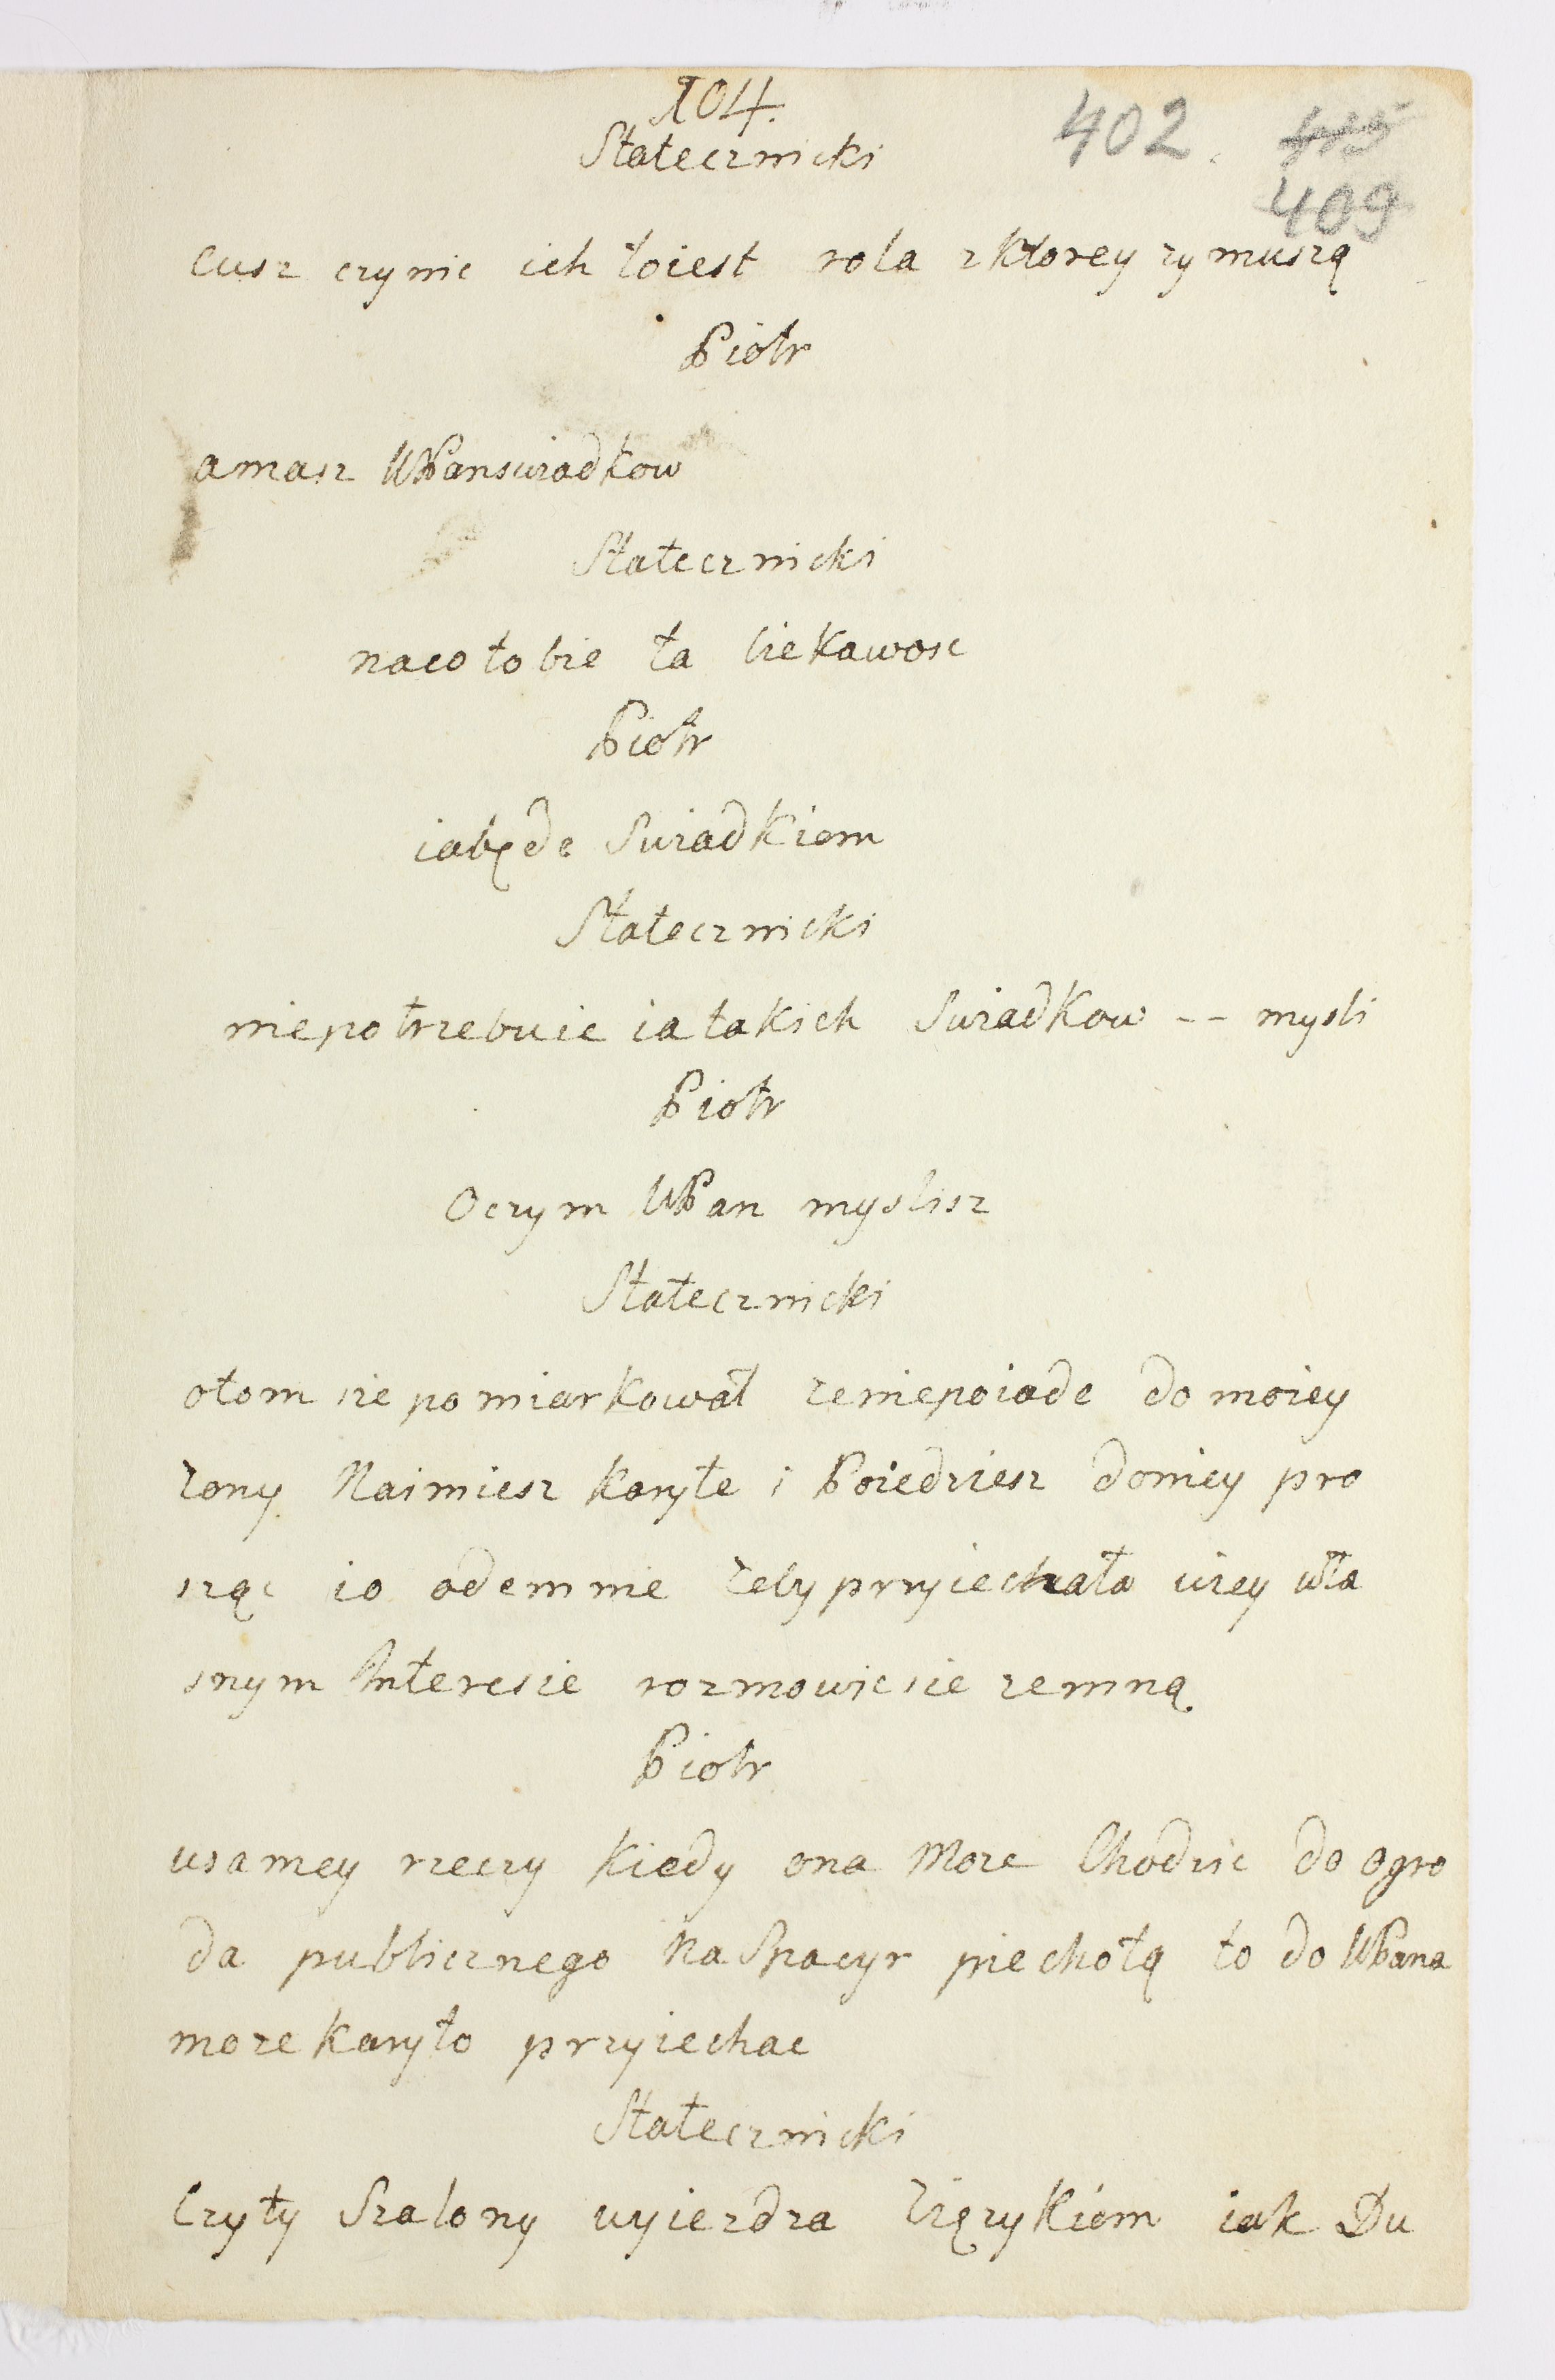 104.
Statecznicki
402.
409
cusz czynic ich toiest rola zktorey zymuszą
Piotr
amasz WPanswiadkow
Statecznicki
naco tobie ta Ciekawosc
Piotr
iabęde Swiadkiem
Statecznicki
niepotrzebuie ia takich Swiadkow -- mysli
Piotr
Oczym WPan myslisz
Statecznicki
otom sie pomiarkował zeniepoiade do moiey
zony Naimiesz karyte i Poiedziesz doniey pro
sząc io odemnie zeby przyiechała wzey wła
snym Interesie rozmowic sie zemną
Piotr
wsamey rzeczy kiedy ona Moze Chodzic do ogro
da publicznego na Spacyr piechotą to do WPana
moze karyto przyiechac
Statecznicki
Czyty Szalony wyiezdza Zięzykiem iak Du